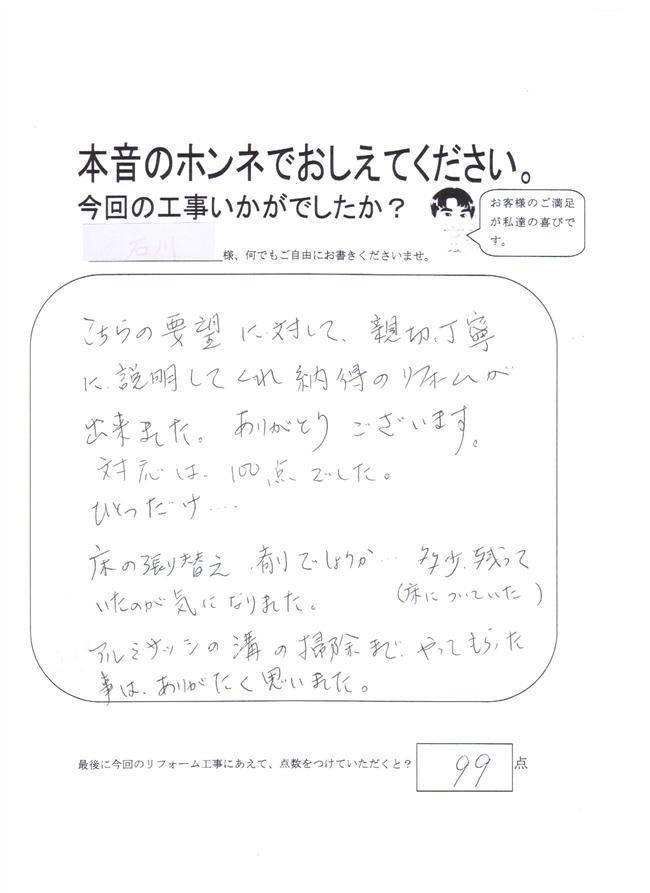 本音のホンネでおしえてください。
今回の工事いかがでしたか？
お客様のご満足
が私達の喜びで
す。
石川
様、何でもご自由にお書きくださいませ。
こちらの要望に対して、親切、丁寧
に説明してくれ納得のリフォームが
出来ました。ありがとうございます。
対応は、100点でした。
ひとつだけ‥‥
床の張り替え、剤でしょうか… 多少、残って
いたのが気になりました。（床についていた）
アルミサッシの溝の掃除まで、やってもらった
事は、ありがたく思いました。
最後に今回のリフォーム工事にあえて、点数をつけていただくと？
99 点